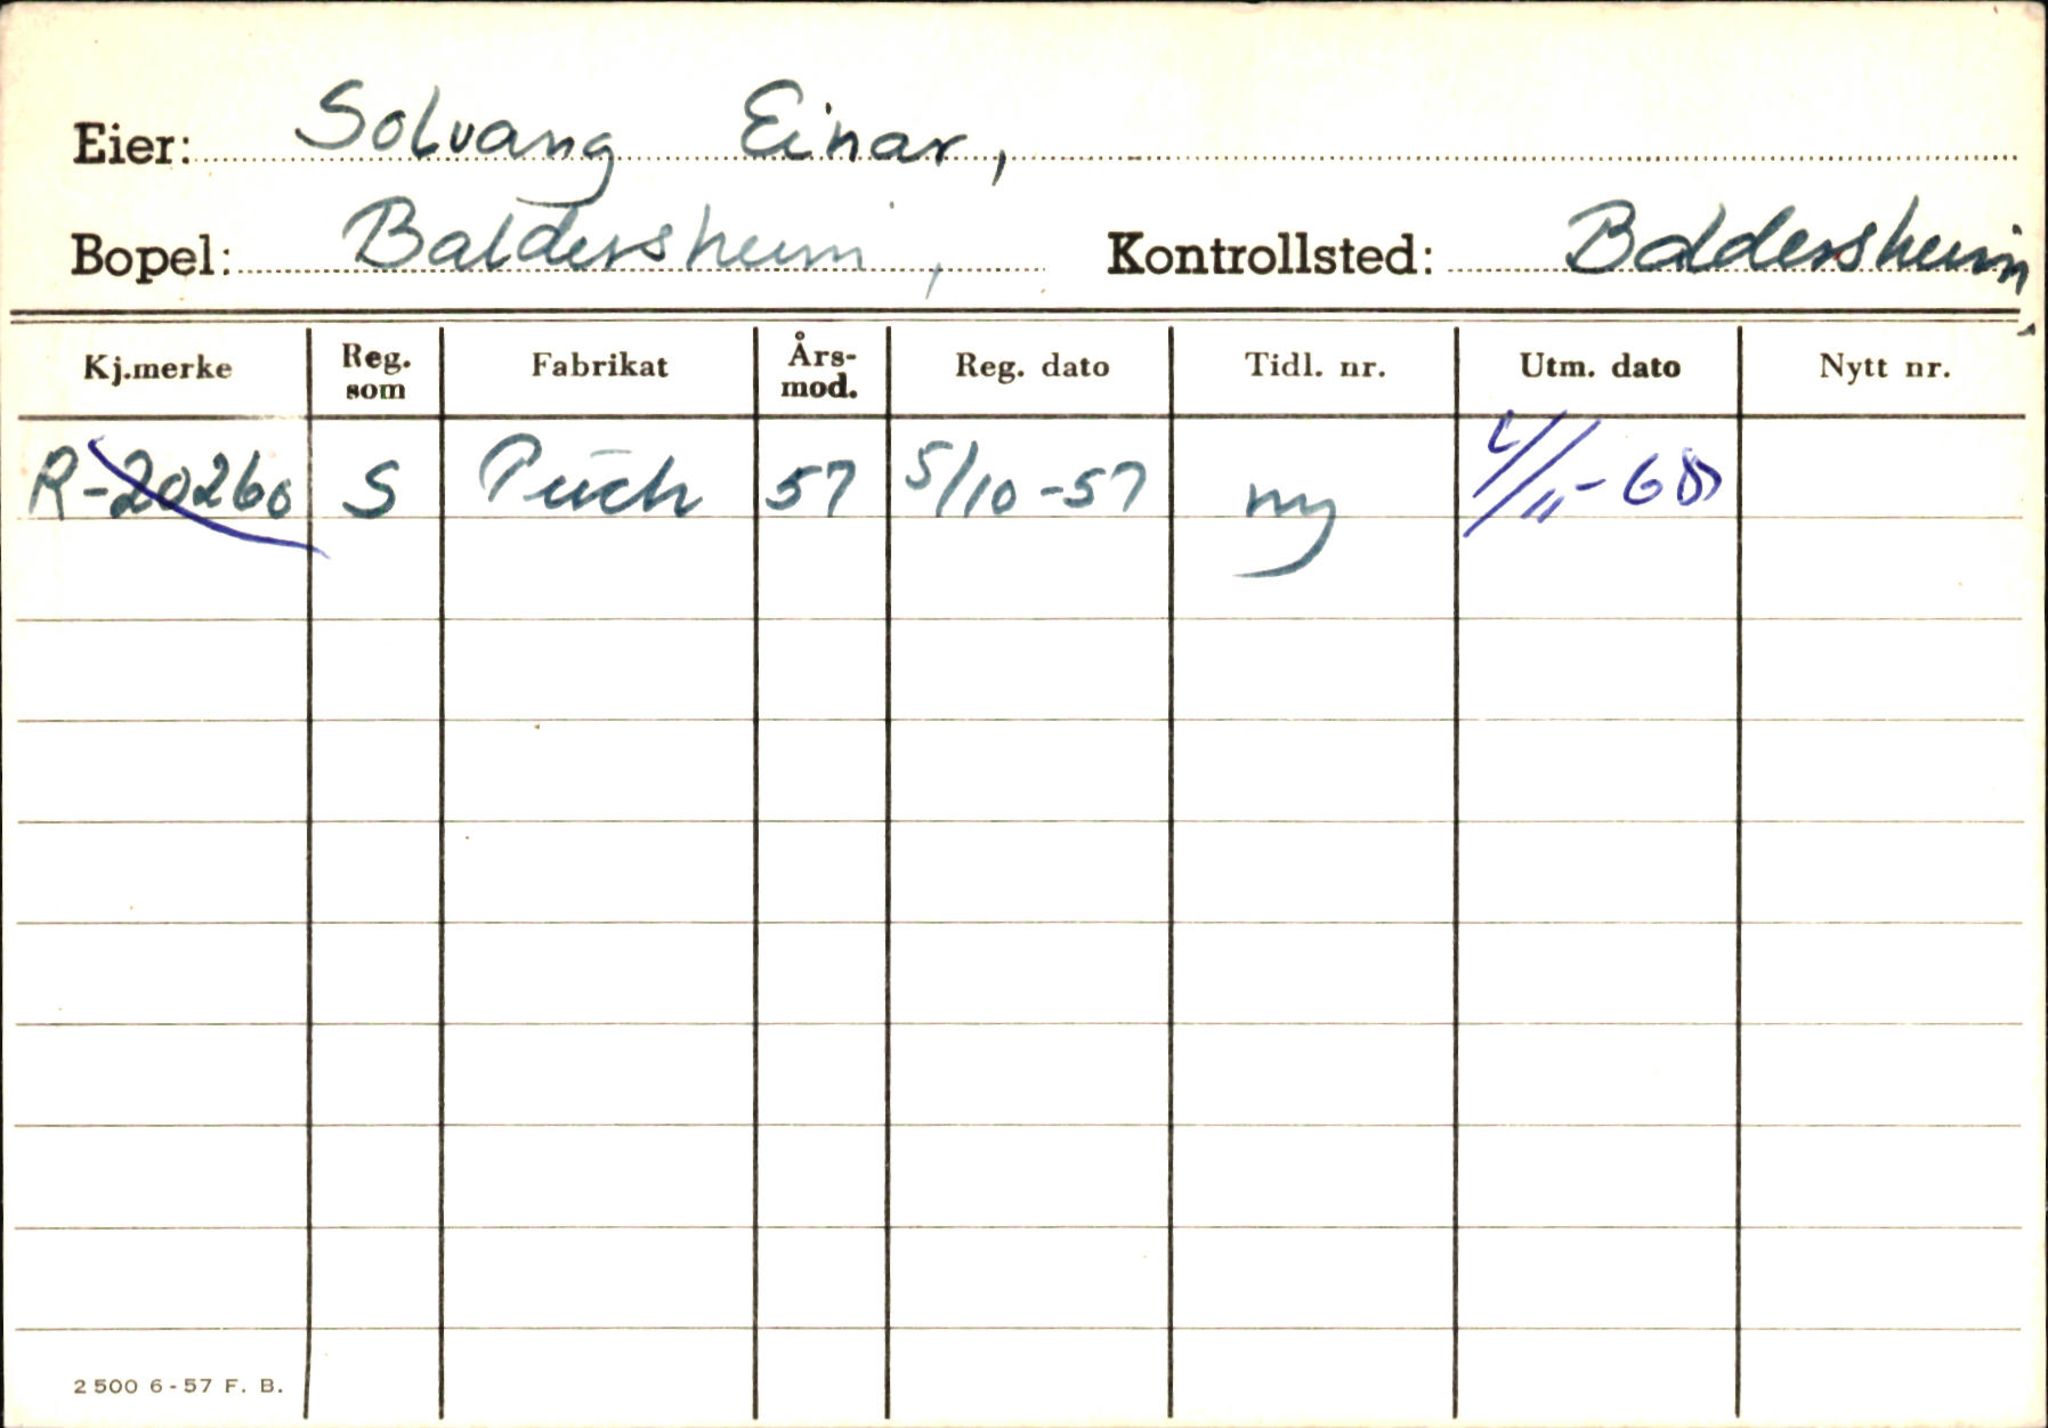 Eier: Solvang Einar,
Bopel: Baldersheim, Kontrollsted: Baldersheim,
Kj.merke Reg. som Fabrikat Års-mod. Reg. dato Tidl. nr. Utm. dato Nytt nr.
R-20260 S Puch 57 5/10-57 ny 4/11-68
2500 6-57 F. B.